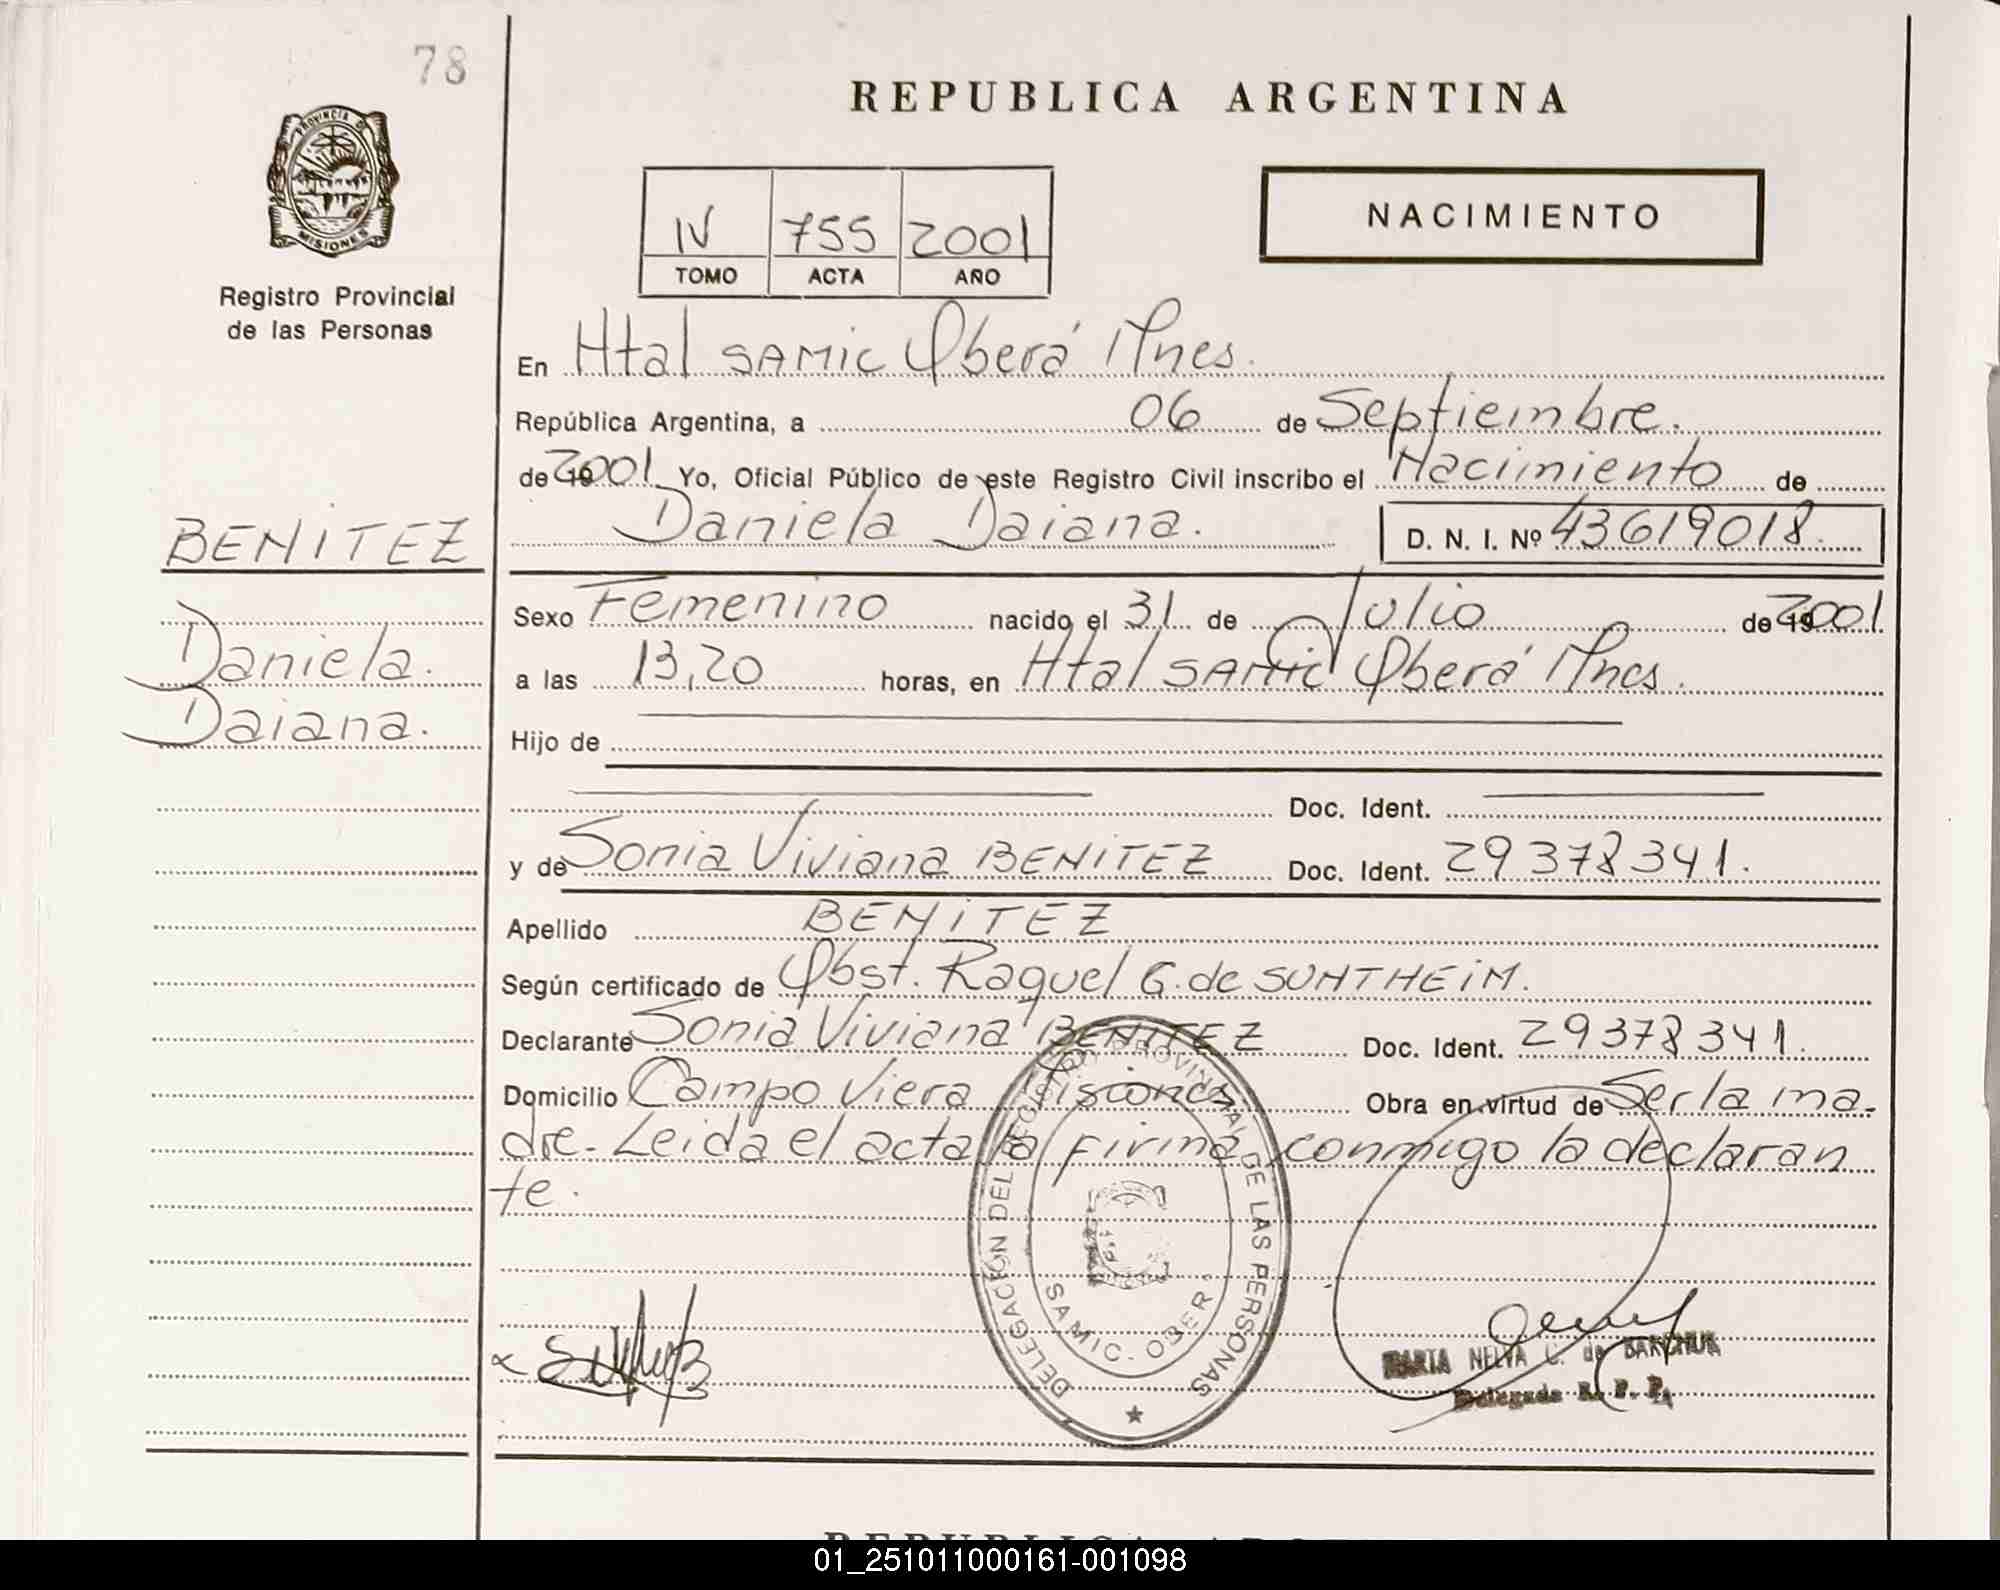 78
REPUBLICA ARGENTINA
PROVINCIA DE
MISIONES
IV 755 2001
TOMO ACTA AÑO
NACIMIENTO
Registro Provincial
de las Personas
En Htal SAMIC Oberá Mnes.
República Argentina, a 06 de Septiembre.
de 2001 Yo, Oficial Público de este Registro Civil inscribo el Nacimiento de
Daniela Daiana. D. N. I. Nº 43619018
BENITEZ
Daniela.
Daiana.
Sexo Femenino nacido el 31 de Julio de 2001
a las 13,20 horas, en Htal SAMIC Oberá Mnes.
Hijo de
Doc. Ident.
y de Sonia Viviana BENITEZ Doc. Ident. 29378341.
Apellido BENITEZ
Según certificado de Obst. Raquel G. de SUNTHEIM.
Declarante Sonia Viviana BENITEZ Doc. Ident. 29378341.
Domicilio Campo Viera Misiones Obra en virtud de Ser la ma-
dre. Leida el acta la firma conmigo la declaran
te.
DELEGACIÓN DEL REGISTRO PROVINCIAL DE LAS PERSONAS
SAMIC - OBER
MARTA NELVA C. de BARCHUK
Delegada R. P. P.
01_251011000161-001098